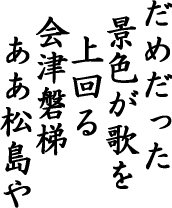 だめだった
景色が歌を
上回る
会津磐梯
ああ松島や